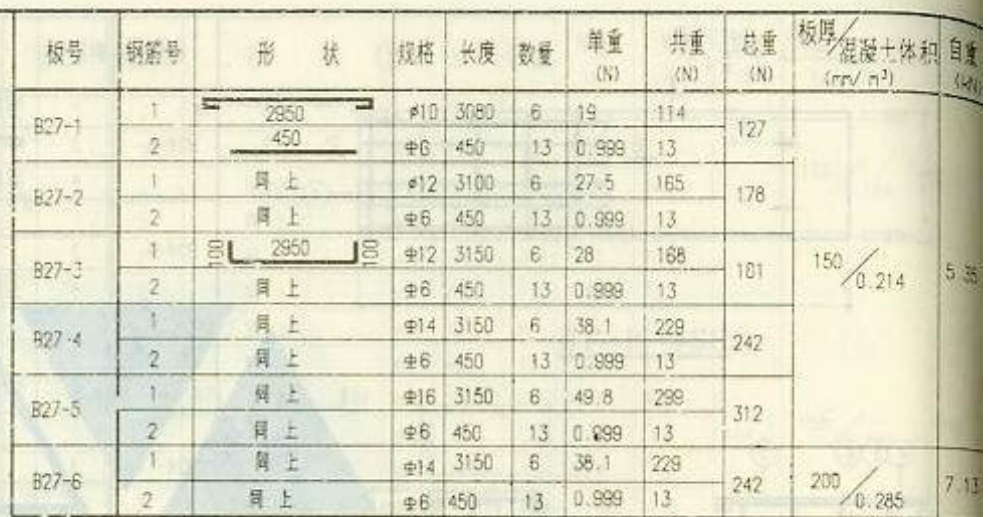 板号 钢筋号 形 状 规格 长度 数量 单重 (N) 共重 (N) 总重 (N) 板厚/混凝土体积 (mm/m³) 自重 (kN)
B27-1 1 2950 φ10 3080 6 19 114 127
2 450 φ6 450 13 0.999 13
B27-2 1 同上 φ12 3100 6 27.5 165 178
2 同上 φ6 450 13 0.999 13
B27-3 1 100 2950 100 φ12 3150 6 28 168 181 150/0.214 5.35
2 同上 φ6 450 13 0.999 13
B27-4 1 同上 φ14 3150 6 38.1 229 242
2 同上 φ6 450 13 0.999 13
B27-5 1 同上 φ16 3150 6 49.8 299 312
2 同上 φ6 450 13 0.999 13
B27-6 1 同上 φ14 3150 6 38.1 229 242 200/0.285 7.13
2 同上 φ6 450 13 0.999 13